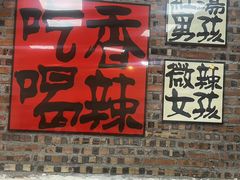 吃香
喝辣
男孩
微辣
女孩